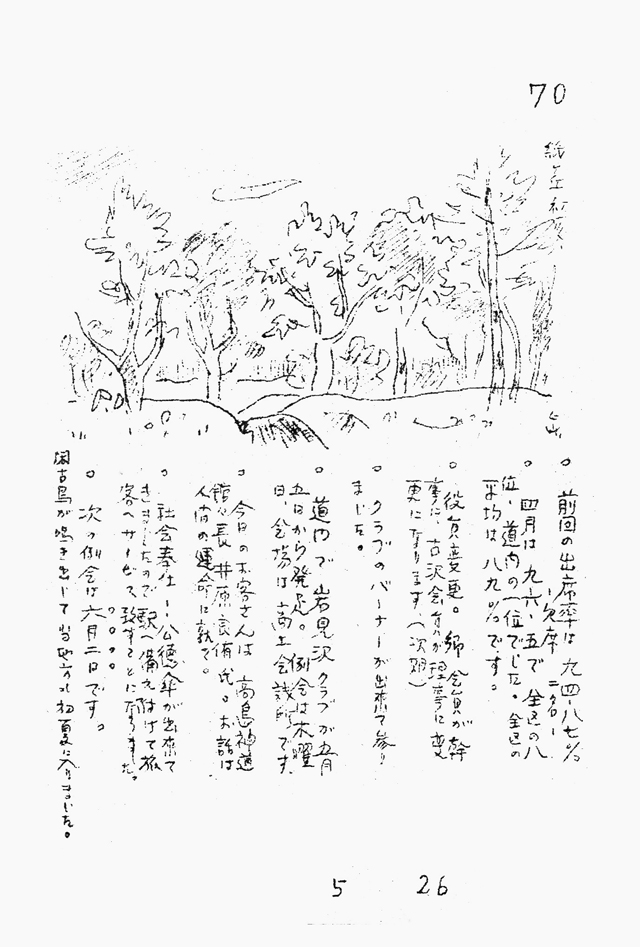 70
○ 前回の出席率は 九四・八七%
欠席 二名
○ 四月は九六・五で全区の八
位、道内の一位でした。全区の
平均は八九%です。
○ 役員変更。 会員が幹
事に、古沢会員が理事に変
更になります(次期)
○ クラブのバーナーが出来て参り
ました。
○ 道内で岩見沢クラブが五月
五日から発足。例会は木曜
日、会場は商工会議所です
○ 今日のお客さんは高島神道
館々長井原 氏。お話は
人間の運命に就て。
○ 社会奉仕ー公徳傘が出来て
きましたので駅へ備え付けて旅
客へサービス致すことになりました。
○ 次の例会は六月二日です。
閑古鳥が鳴き出して当地方も初夏に入りました。
5 26